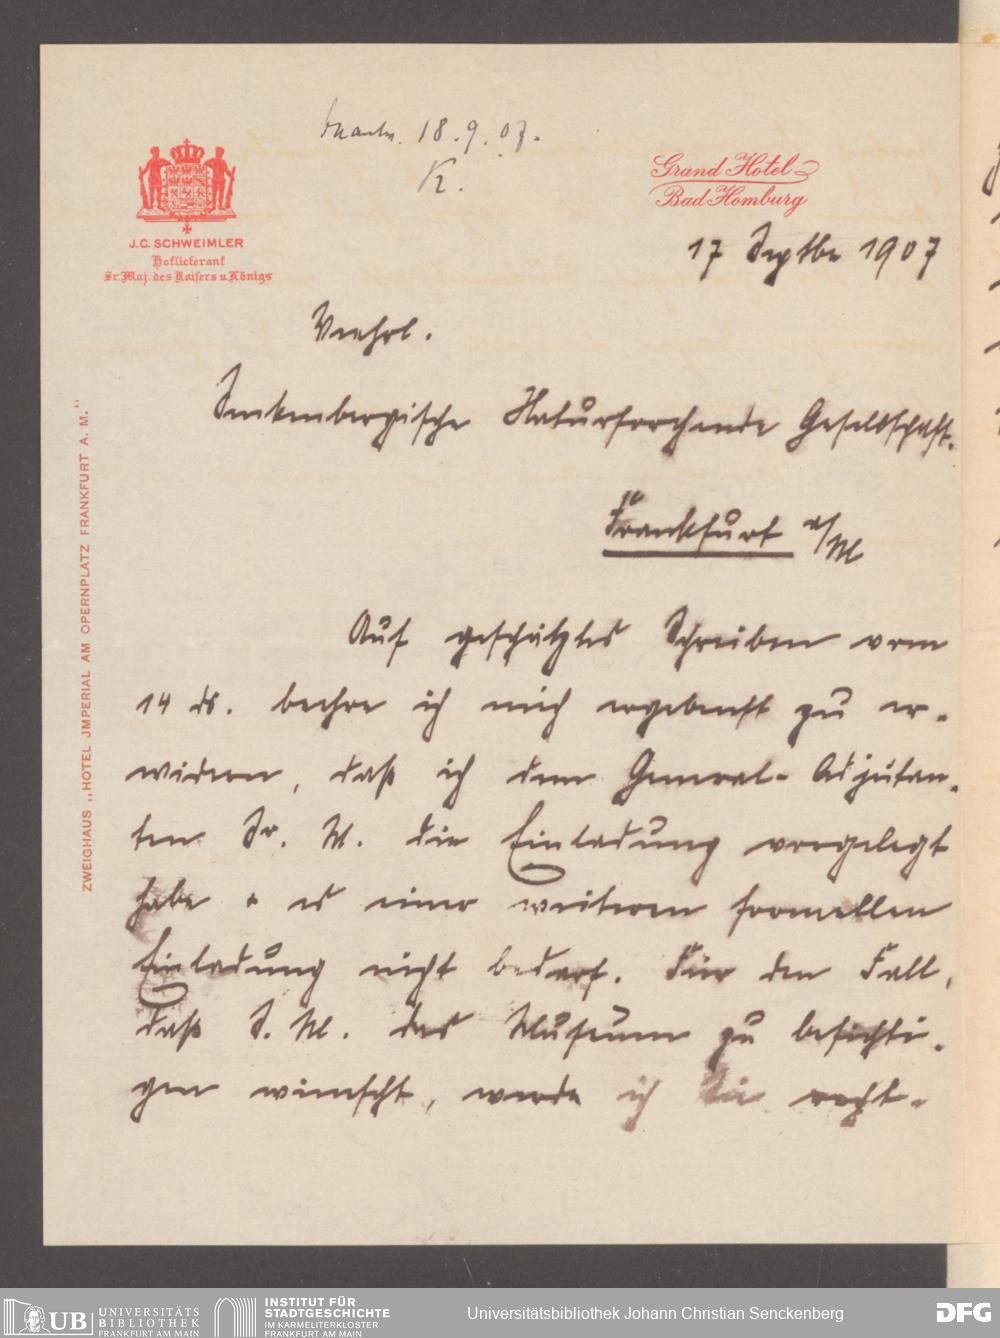 18.9.07.
K.
J.C. SCHWEIMLER
Hoflieferant
Sr. Maj. des Kaisers u. Königs
Grand Hotel
Bad Homburg
17 Septbr 1907
Verehrl.
Senkenbergische Naturforschende Gesellschaft.
Frankfurt a/M
Auf geschätztes Schreiben vom
14 ds. beehre ich mich ergebenst zu er-
widern, daß ich dem General-Adjutan-
ten Sr. M. die Einladung vorgelegt
habe + es einer weiteren formellen
Einladung nicht bedarf. Für den Fall,
daß S. M. das Museum zu besichti-
gen wünscht, werde ich Sie recht-
ZWEIGHAUS „HOTEL JMPERIAL AM OPERNPLATZ FRANKFURT A. M."
UB UNIVERSITÄTS
BIBLIOTHEK
FRANKFURT AM MAIN
INSTITUT FÜR
STADTGESCHICHTE
IM KARMELITERKLOSTER
FRANKFURT AM MAIN
Universitätsbibliothek Johann Christian Senckenberg
DFG